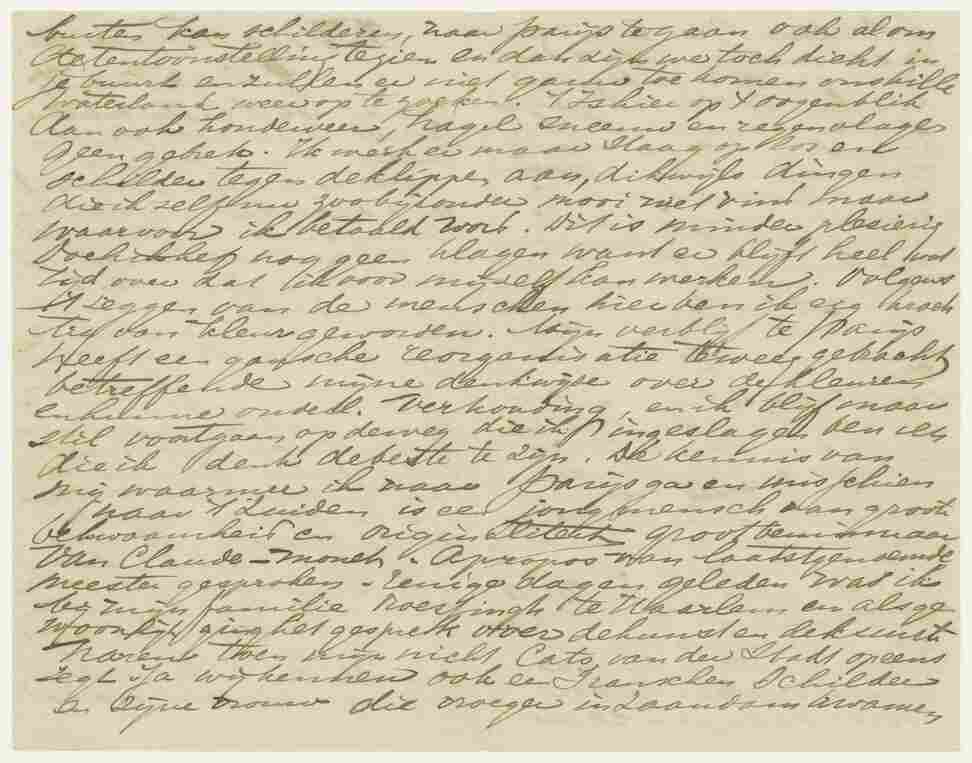 buiten kan schilderen, naar parijs te gaan ook al om
de tentoonstelling te zien en dan zijn we toch dicht in
je buurt en zullen er niet gauw toe komen ons stille
Waterland weer op te zoeken. 't Is hier op 't oogenblik
dan ook hondeweer, hagel sneeuw en regenvlagen
geen gebrek. Ik werk er maar staag op los en
schilder tegen de klippen aan, dikwijls dingen
die ik zelf nu zoo byzonder mooi niet vind maar
waarvoor ik betaald word. Dit is minder plesierig
Doch ik heb nog geen klagen want er blijft heel wat
tijd over dat ik voor myzelf kan werken. Volgens
't zeggen van de menschen hier ben ik erg krach
tig van kleur geworden. Mijn verblijf te Parijs
heeft een gansche reorganisatie teweeg gebracht
betreffende mijne denkwijze over de kleuren
en hunne onderl. verhouding, en ik blijf maar
stil voortgaan op de weg die ik ingeslagen ben en
die ik denk de beste te zijn. De kennis van
mij waarmee ik naar Parijs ga en misschien
naar 't Zuiden is een jong mensch van groote
bekwaamheid en originaliteit groot beminnaar
van Claude-Monet. Apropos van laatstgenoemde
meester gesproken. Eenige dagen geleden was ik
by mijn familie Roessingh te Haarlem en als ge
woonlijk ging het gesprek over de kunst en de kunste
naren toen mijn nicht Cato van der Stadt opeens
zegt Ja wij kennen ook een Franschen Schilder
en zijne vrouw die vroeger in Zaandam kwamen